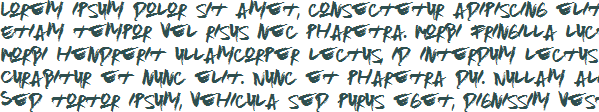 LOREM IPSUM DOLOR SIT AMET, CONSECTETUR ADIPISCING ELIT
ETIAM TEMPOR VEL RISUS NEC PHARETRA. MORBI FRINGILLA LUC
MORBI HENDRERIT ULLAMCORPER LECTUS, ID INTERDUM LECTUS
CURABITUR ET NUNC ELIT. NUNC ET PHARETRA DUI. NULLAM AL
SED TORTOR IPSUM, VEHICULA SED PURUS EGET, DIGNISSIM VES